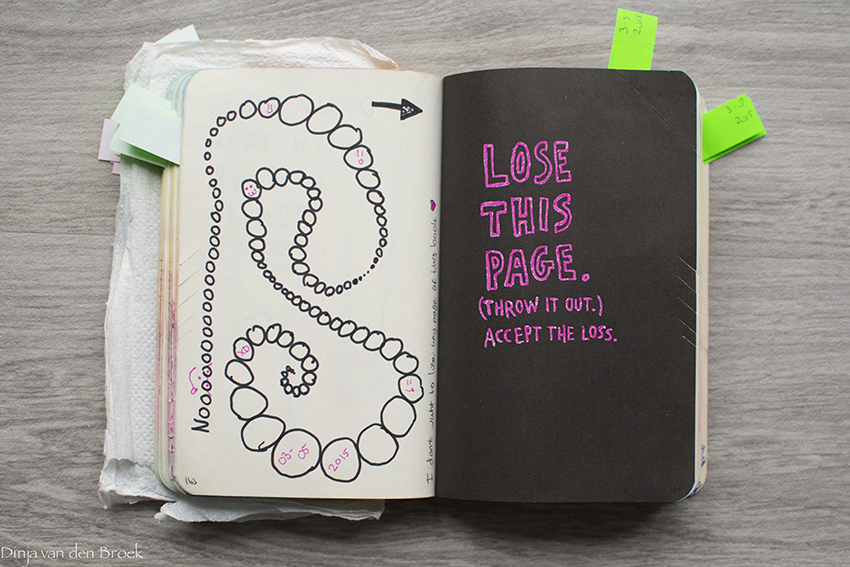 3-5
2015
3-5
2015
Noooo
XD
03-
05
2015
I don't want to lose any page of this book ♥
LOSE
THIS
PAGE.
(THROW IT OUT.)
ACCEPT THE LOSS.
Dinja van den Broek